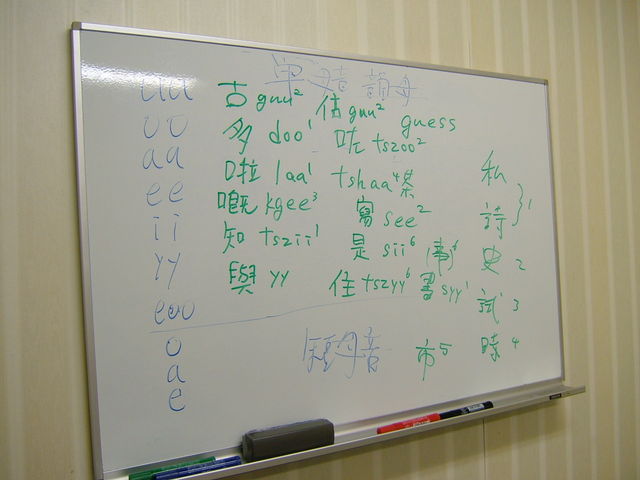 單母音 韻母
uu 古 guu² 估 guu² guess
oo 多 doo¹ 咗 tszoo²
aa 啦 laa¹ tshaa⁴ 茶 私
ee 嘅 kgee³ 寫 see² 詩 } 1
ii 知 tszii¹ 是 sii⁶ (事)⁶ 史 2
yy 與 yy 住 tszyy⁶ 書 syy¹ 試 3
eoo
o 短母音 市⁵ 時 4
a
e